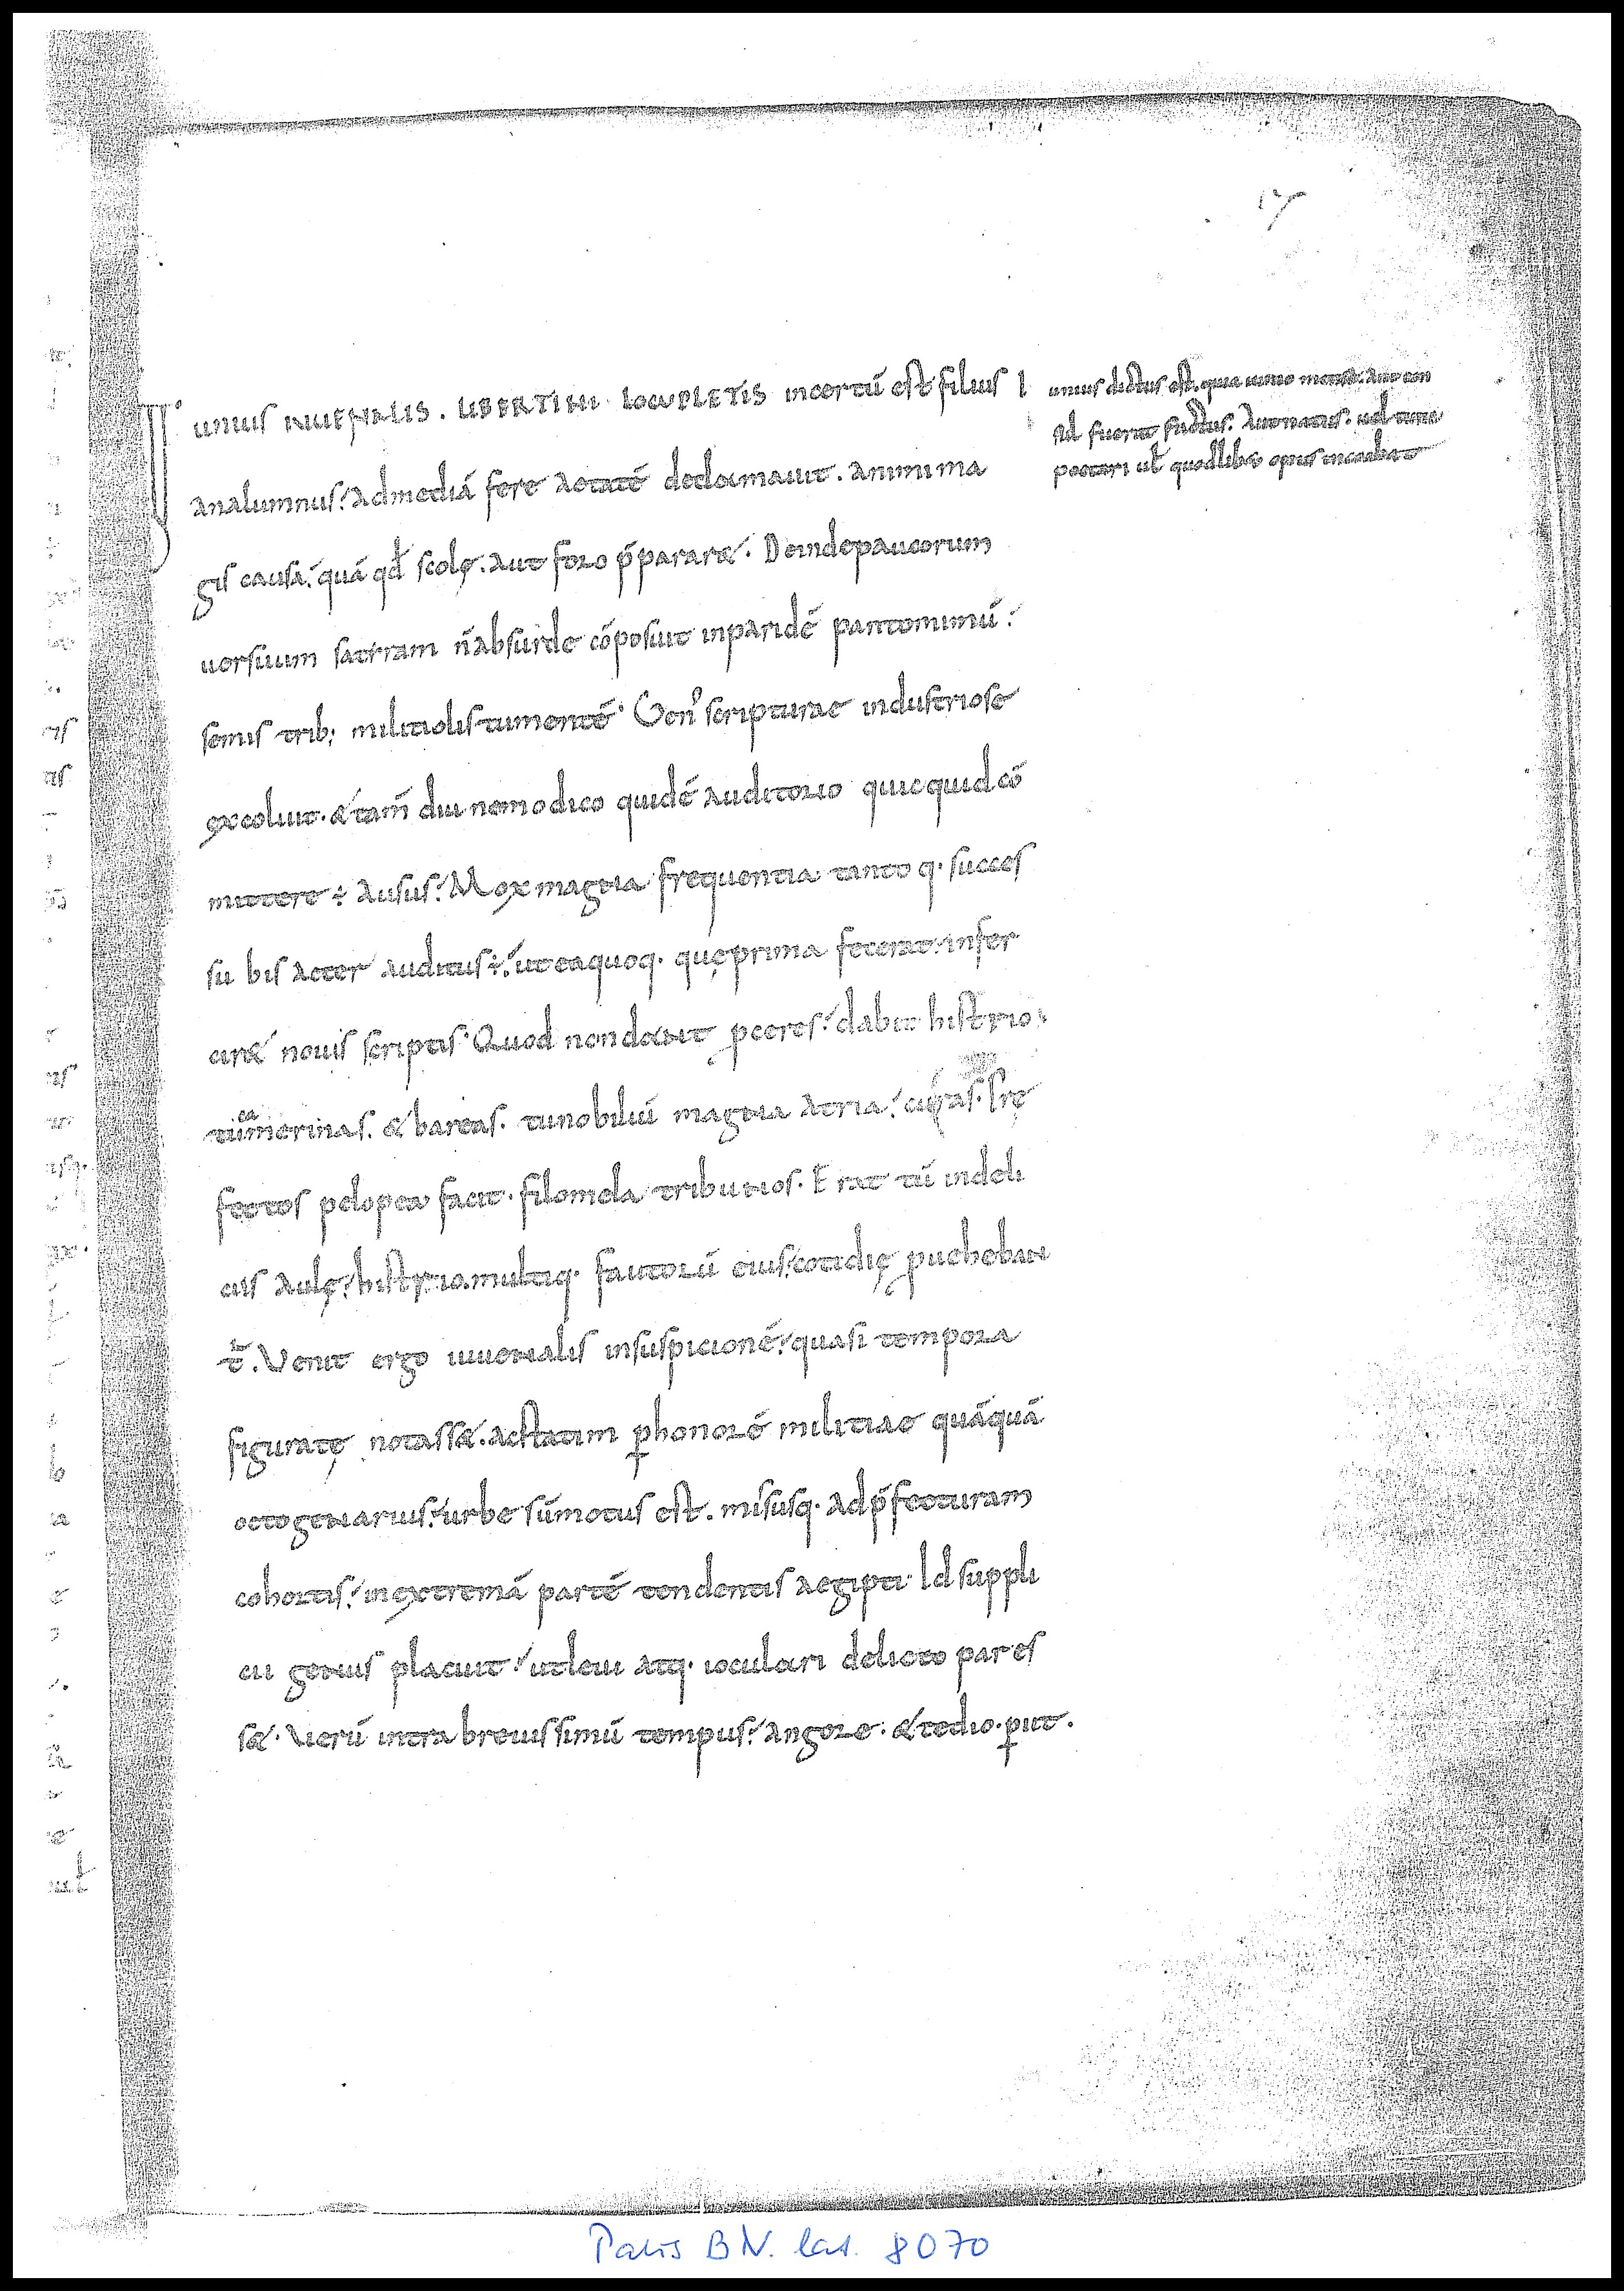 17
IUNIUS IUUENALIS. LIBERTINI LOCUPLETIS incertū est filius
analumnus? admediā fere aetatē declamauit. animi ma
gis causa? quā qd̄ scolę. aut foro p̄pararet. Deindepaucorum
uersuum satiram n̄absurde cōposuit inparidē pantomimū?
semis trib; militiolistumentē. Gen' scripturae industriose
excoluit. & tam̄ diu nemodico quidē auditorio quicquid cō
mittere ÷ ausus? Mox magna frequentia tanto q. succes
su bis acter auditus ÷? ut eaquoq. quęprima fecerat. infer
ciret nouis scriptis. Quod nondant ꝓceres? dabit histrio.
ca
tūmerinas. & bareas. tunobiliū magna atria? curas. Pre
fectos pelopea facit. filomela tribunos. Erat tū indeli
ciis aulę? histrio. multiq. fautorū eius? cotidię ꝓueheban
t̄. Venit ergo iuuenalis insuspicionē? quasi tempora
figuratę notasset. acstatim ꝑhonorē militiae quāquā
octogenarius? urbe sūmotus est. misusq. adp̄fecturam
cohortis? inextremā partē tendentis aegipti. Id suppli
cii genus placuit? utleui atq. ioculari delicto par es
set. Verū intra breuissimū tempus? angore. & tedio. ꝑiit.
Iunius dictus est. quia iunio mense. aut con
sul fuerat factus. Aut natus. uel tunc
poetari ul̄ quodlibet opus incoabat
Paris BN. lat. 8070